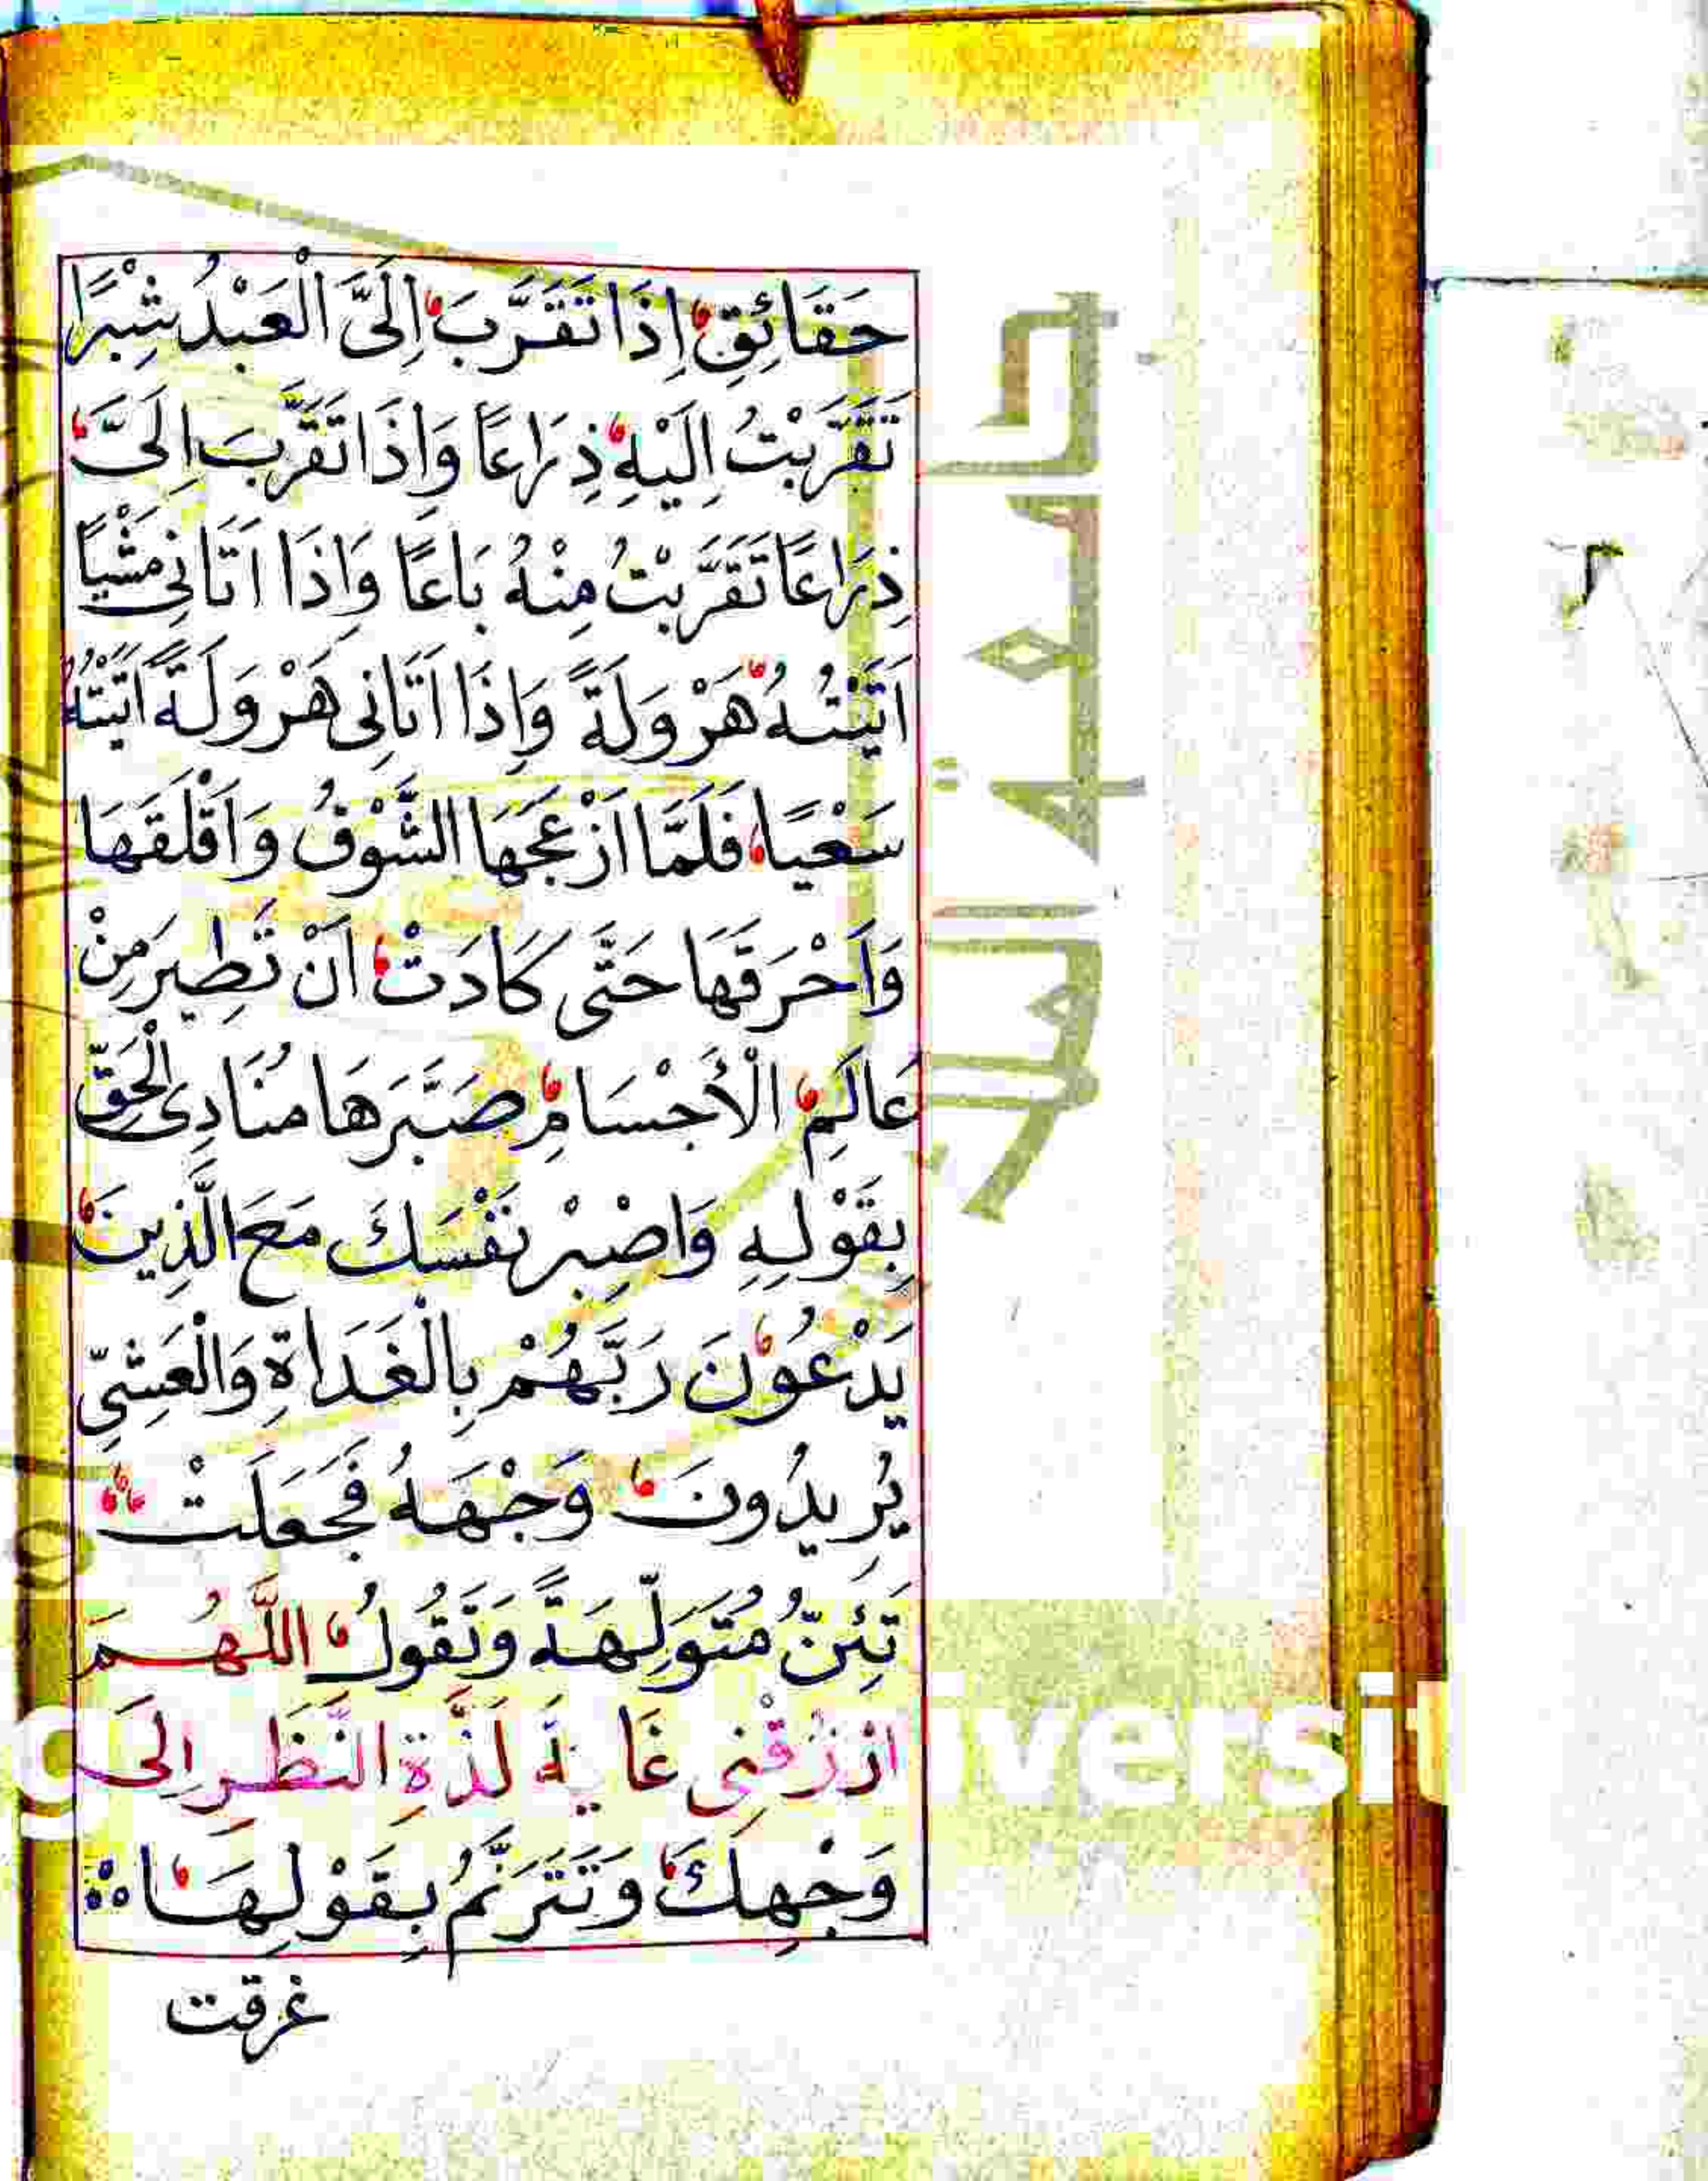 حَقَائِقِ اِذَا تَقَرَّبَ اِلَىَّ الْعَبْدُ شِبْرًا
تَقَرَّبْتُ اِلَيْهِ ذِرَاعًا وَاِذَا تَقَرَّبَ اِلَىَّ
ذِرَاعًا تَقَرَّبْتُ مِنْهُ بَاعًا وَاِذَا اَتَانِى مَشْيًا
اَتَيْتُهُ هَرْوَلَةً وَاِذَا اَتَانِى هَرْوَلَةً اَتَيْتُهُ
سَعْيًا فَلَمَّا اَزْعَجَهَا الشَّوْقُ وَاَقْلَقَهَا
وَاَحْرَقَهَا حَتَّى كَادَتْ اَنْ تَطِيرَ مِنْ
عَالَمِ الْأَجْسَامِ صَبَّرَهَا مُنَادِى الْحَقِّ
بِقَوْلِهِ وَاصْبِرْ نَفْسَكَ مَعَ الَّذِينَ
يَدْعُونَ رَبَّهُمْ بِالْغَدَاةِ وَالْعَشِىِّ
يُرِيدُونَ وَجْهَهُ فَجَعَلَتْ
تَئِنُّ مُتَوَلِّهَةً وَتَقُولُ اللَّهُمَّ
ارْزُقْنِى غَايَةَ لَذَّةِ النَّظَرِ اِلَى
وَجْهِكَ وَتَتَرَنَّمُ بِقَوْلِهَا
غرقت
جامعة الملك
iversit